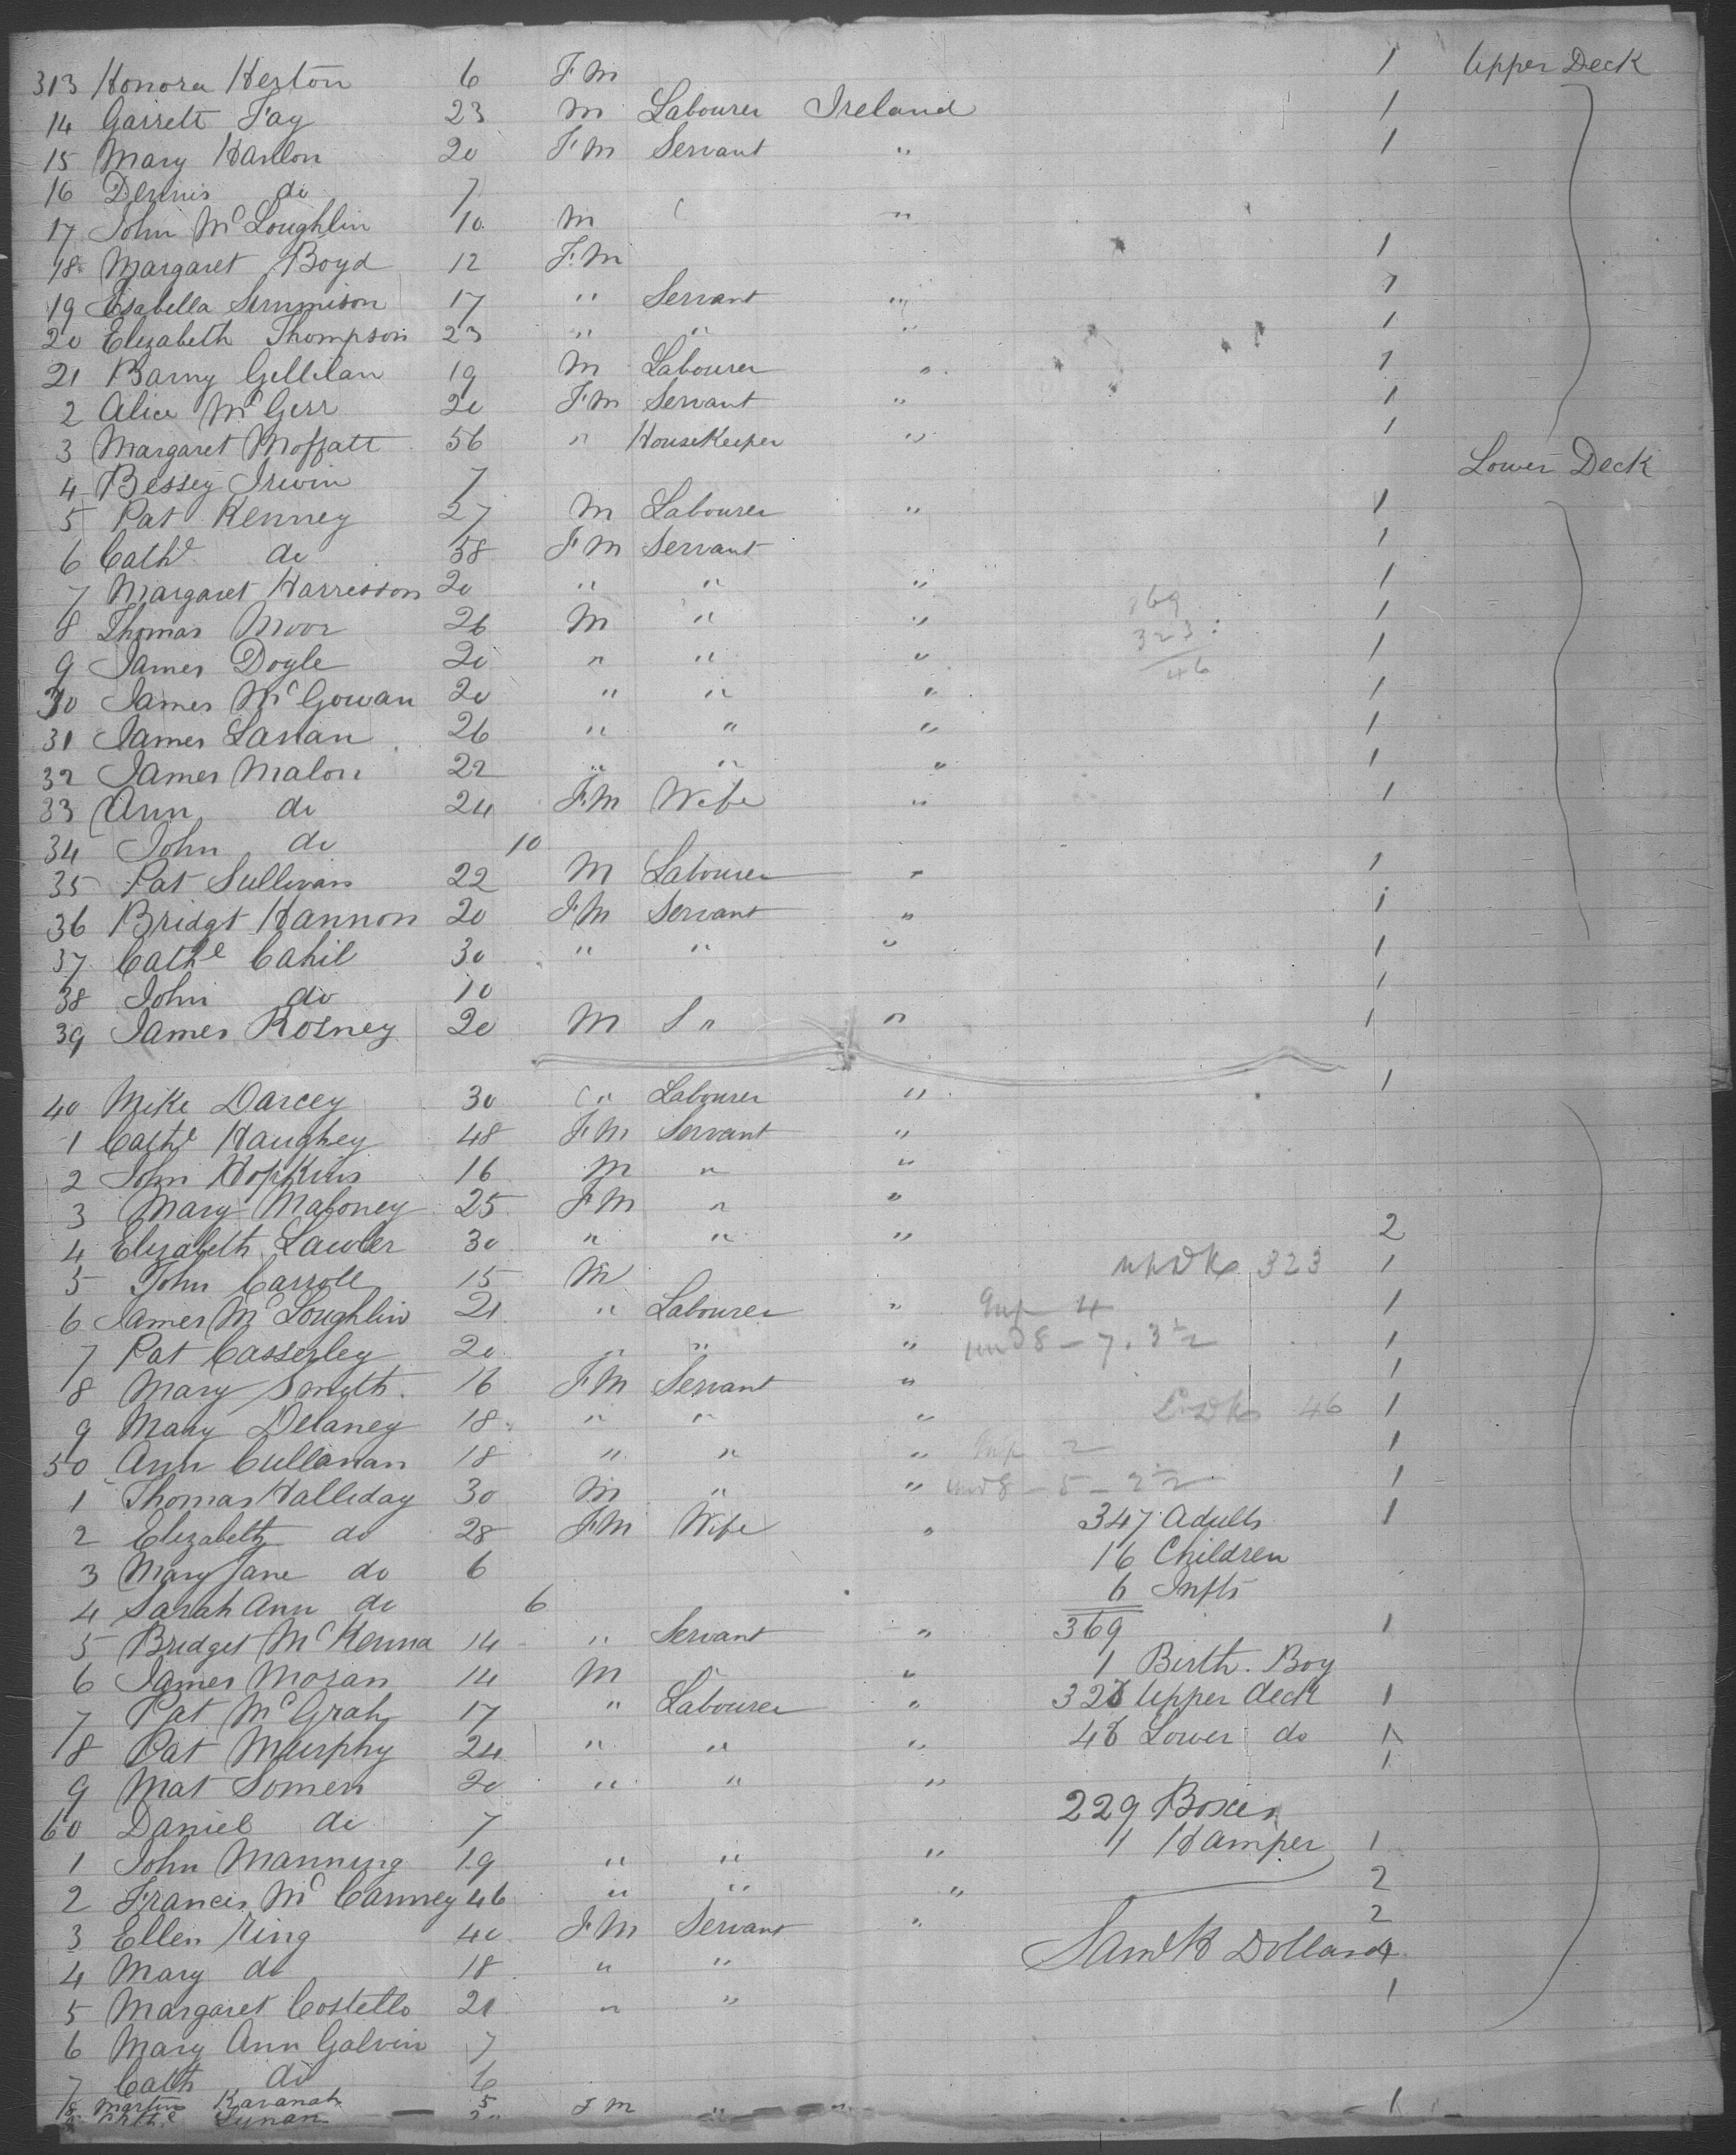 313 Honora Herton 6 F M 1 Upper Deck
14 Garrett Fay 23 M Labourer Ireland 1
15 Mary Hanlon 20 F M Servant " 1
16 Dennis do 7
17 John McLoughlin 10 M "
18 Margaret Boyd 12 F M 1
19 Isabella 17 " Servant " 1
20 Elizabeth Thompson 23 " " " 1
21 Barny Gillilan 19 M Labourer " 1
2 Alice McGerr 20 F M Servant " 1
3 Margaret Moffatt 56 " HouseKeeper " 1
4 Bessey Irwin 7 Lower Deck
5 Pat Kenney 27 M Labourer " 1
6 Cathe do 38 F M Servant 1
7 Margaret Harresson 20 " " " 1
8 Thomas Moor 26 M " " 1
9 James Doyle 20 " " " 1
30 James McGowan 20 " " " 1
31 James 26 " " " 1
32 James Malon 22 " " " 1
33 Ann do 24 F M Wife " 1
34 John do 10
35 Pat Sullivan 22 M Labourer " 1
36 Bridgt Hannon 20 F M Servant " 1
37 Cathe Cahil 30 " " " 1
38 John do 10 1
39 James Rosney 20 M S " " 1
40 Mike Darcey 30 " Labourer " 1
1 Cathe Haughey 48 F M Servant "
2 John Hopkins 16 M " "
3 Mary Mahoney 25 F M " "
4 Elizabeth Lawler 30 " " " 2
5 John Carroll 15 M 323 1
6 James McLoughlin 21 " Labourer " 4 1
7 Pat Casserley 20 " " " und 8 - 7 . 3 1/2 1
8 Mary Smyth 16 F M Servant " 1
9 Mary Delaney 18 " " " 46 1
50 Ann Cullanan 18 " " " 2 1
1 Thomas Halliday 30 M " " und 8 - 5 - 2 1/2 1
2 Elizabeth do 28 F M Wife " 347 Adults 1
3 Mary Jane do 6 16 Children
4 Sarah Ann do 6 6 Infts
5 Bridget McKenna 14 " Servant " 369 1
6 James Moran 14 M " 1 Birth. Boy
7 Pat McGrah 17 " Labourer " 323 Upper deck 1
8 Pat Murphy 24 " " " 46 Lower do 1
9 Mat Somers 20 " " " 1
60 Daniel do 7 229 Boxes
1 John Manning 19 " " " 11 Hamper 1
2 Francis McCanney 46 " " " 2
3 Ellen King 40 F M Servant " 2
4 Mary do 18 " "
5 Margaret Costello 21 " " 1
6 Mary Ann Galvin 7
7 Cath do 6
8 Martin Kavanah 5
Cathe Synan 20 F M " " 1